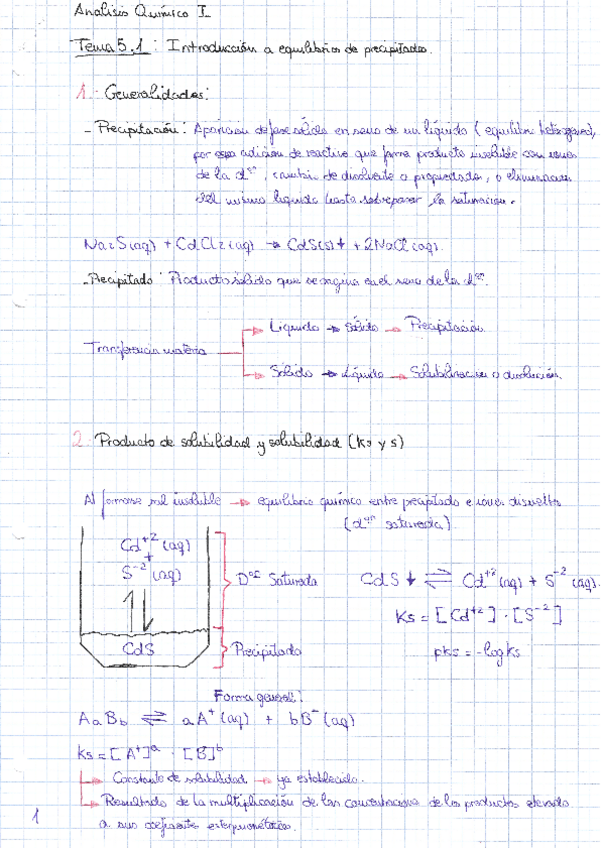 Analisis Quimico I
Tema 5.1: Introducción a equilibrios de precipitados.
1. Generalidades:
- Precipitación: Aparicion de fase sólida en seno de un líquido (equilibrio heterogeneo),
por adición de reactivo que forme producto insoluble con iones
de la dºn, cambio de disolvente o propiedades, o eliminacion
del mismo liquido hasta sobrepasar la saturacion.
Na2S(aq) + CdCl2(aq) → CdS(s)↓ + 2NaCl(aq).
- Precipitado: Producto sólido que se origina en el seno de la dºn.
Líquido → Sólido → Precipitación
Transferencia materia
Sólido → Líquido → Solubilizacion o disolución.
2. Producto de solubilidad y solubilidad (Ks y s)
Al formarse sal insoluble → equilibrio químico entre precipitado e iones disueltos
(dºn saturada)
Cd+2 (aq)
+
S-2 (aq)
Dºn Saturada
CdS ↓ ⇌ Cd+2 (aq) + S-2 (aq).
Ks = [Cd+2] · [S-2]
CdS
Precipitado
pKs = -log Ks
Forma general:
AaBb ⇌ aA+ (aq) + bB- (aq)
Ks = [A+]a · [B]b
Constante de solubilidad → ya establecido.
Resultado de la multiplicación de las concentraciones de los productos elevado
a sus coeficientes estequiométricos.
1